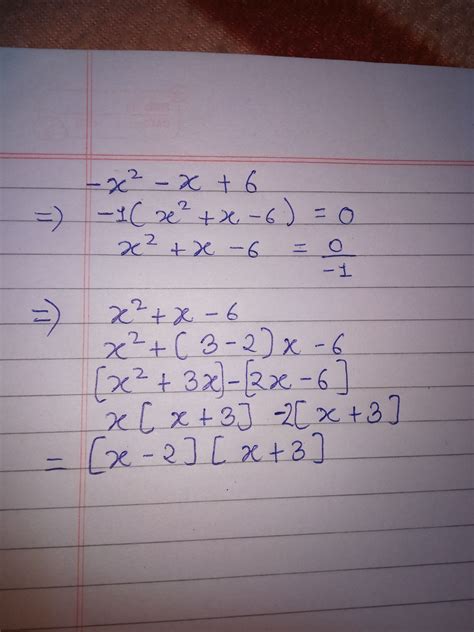 -x² - x + 6
⇒) -1( x² + x - 6 ) = 0
x² + x - 6 = 0/-1
⇒) x² + x - 6
x² + ( 3 - 2 ) x - 6
[x² + 3x] - [2x - 6]
x [ x + 3 ] - 2 [ x + 3 ]
= [ x - 2 ] [ x + 3 ]